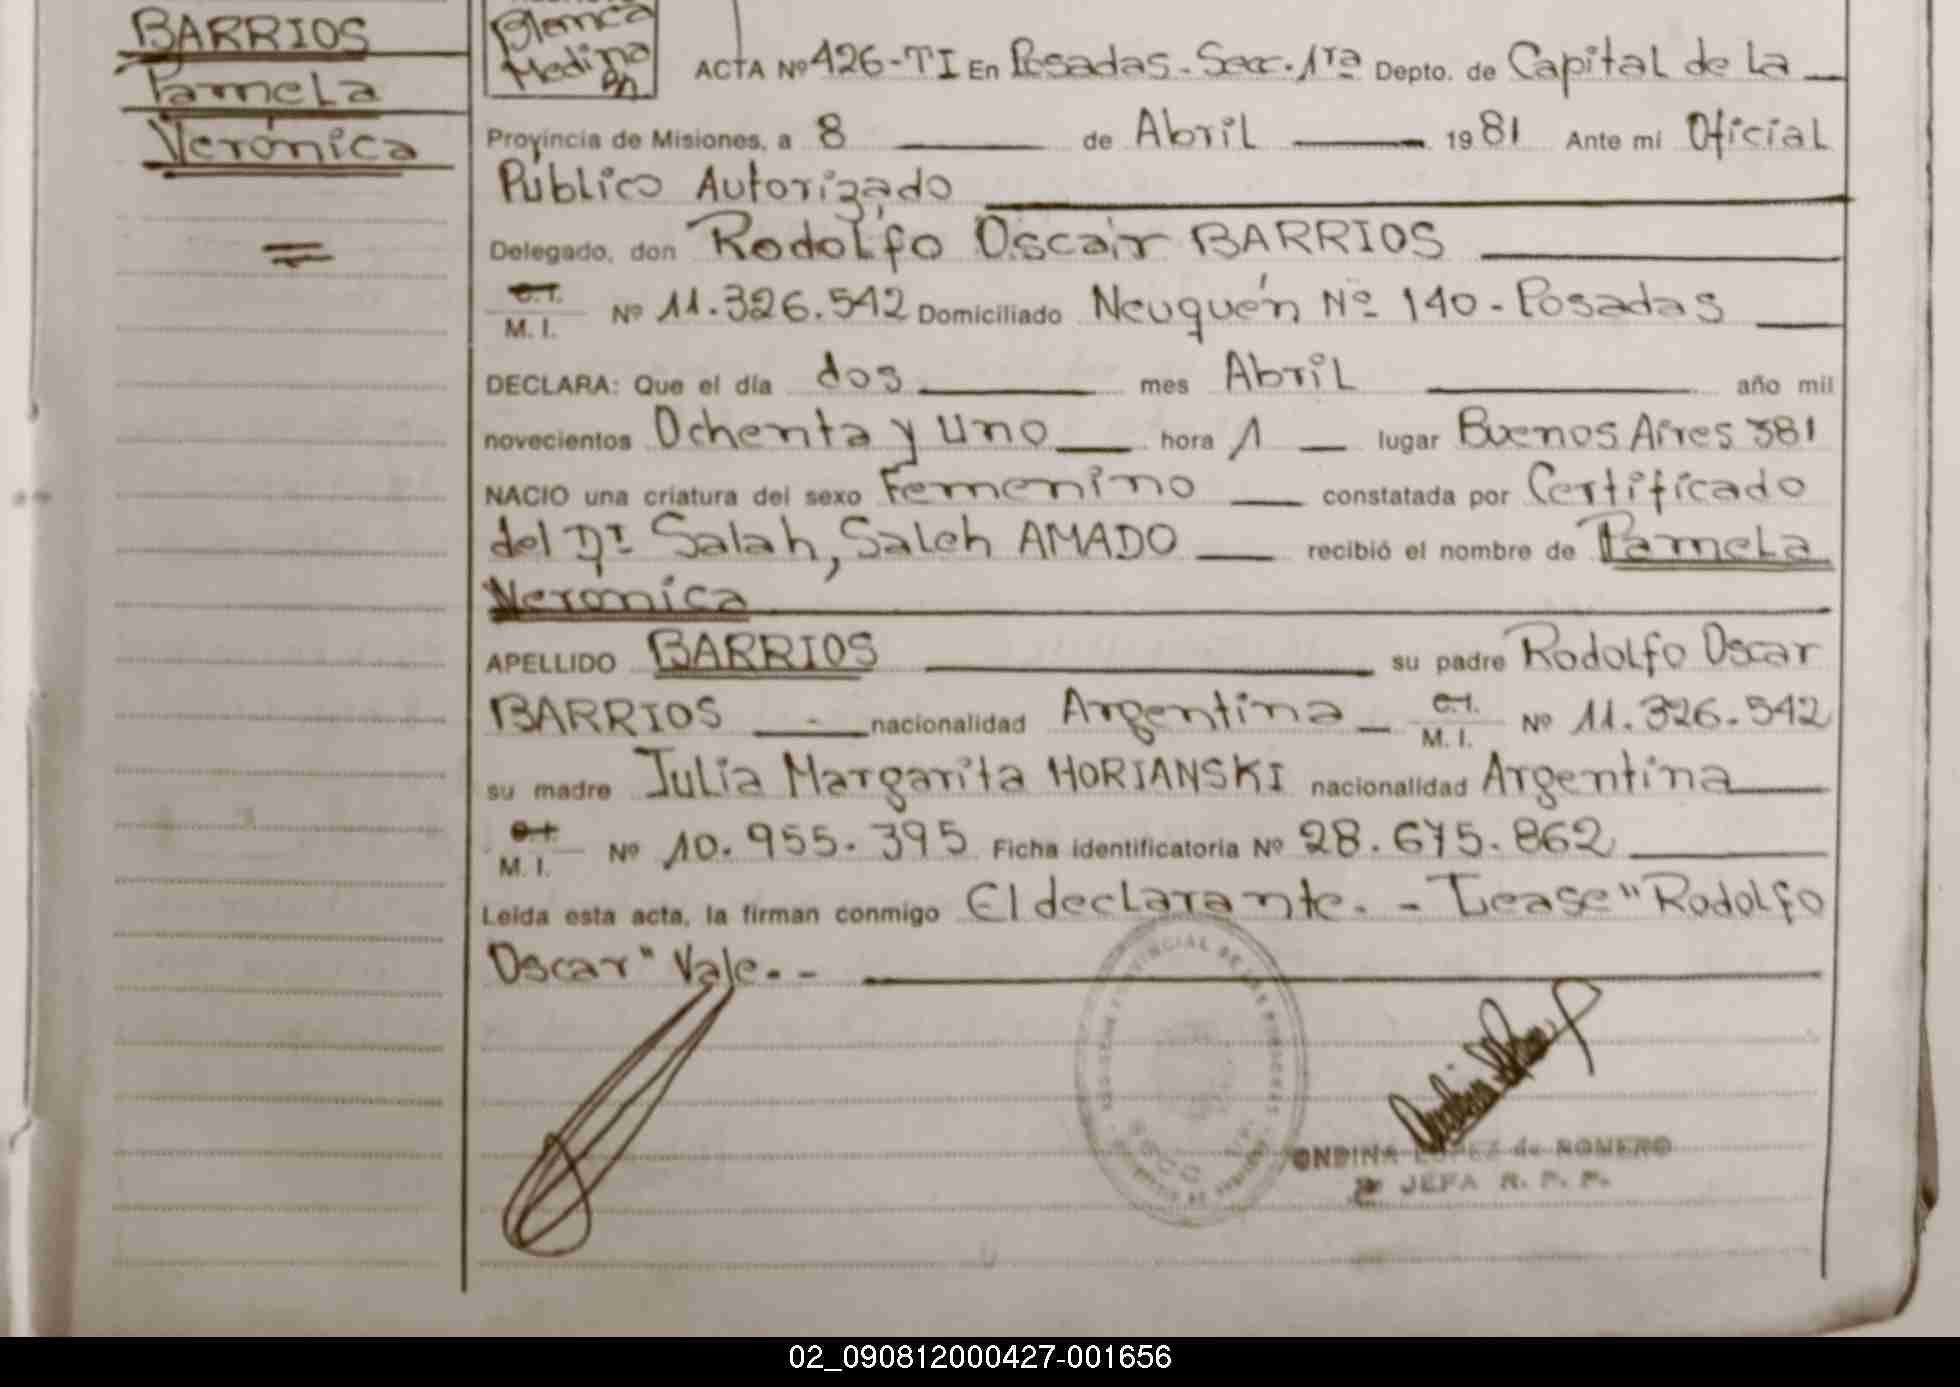 BARRIOS
Pamela
Verónica
Blanca
Medina
ACTA Nº 426-TI En Posadas-Secc.1ra Depto. de Capital de la
Provincia de Misiones, a 8 de Abril 1981 Ante mi Oficial
Público Autorizado
Delegado, don Rodolfo Oscair BARRIOS
C.I.
M. I. Nº 11.326.542 Domiciliado Neuquén Nº 140-Posadas
DECLARA: Que el día dos mes Abril año mil
novecientos Ochenta y uno hora 1 lugar Buenos Aires 381
NACIO una criatura del sexo Femenino constatada por Certificado
del Dr. Salah, Saleh AMADO recibió el nombre de Pamela
Verónica
APELLIDO BARRIOS su padre Rodolfo Oscar
BARRIOS nacionalidad Argentina C.I. M. I. Nº 11.326.542
su madre Julia Margarita HORIANSKI nacionalidad Argentina
C.I.
M. I. Nº 10.955.395 Ficha identificatoria Nº 28.675.862
Leída esta acta, la firman conmigo El declarante.- Lease "Rodolfo
Oscar" Vale.-
ONDINA LOPEZ de ROMERO
JEFA R. P. P.
02_090812000427-001656